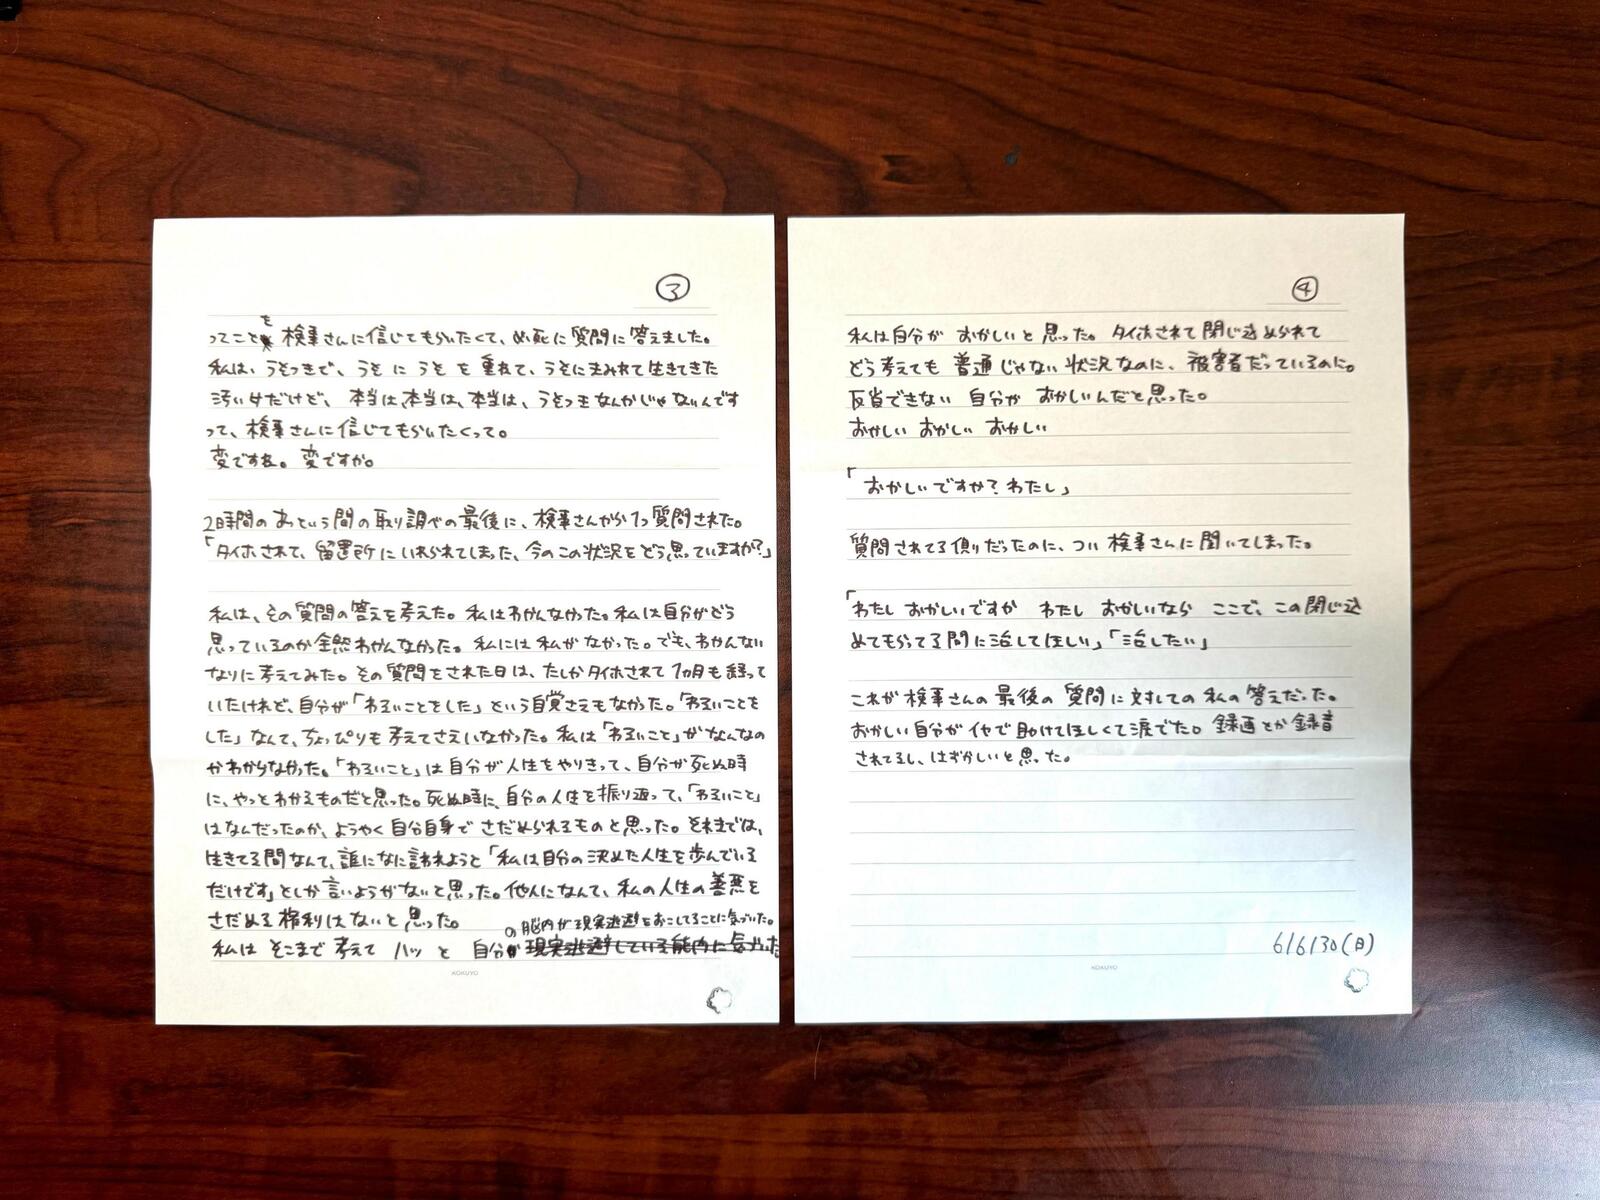 ③
ってことを 検事さんに信じてもらいたくて、必死に質問に答えました。
私は、うそつきで、うそ に うそ を 重ねて、うそにまみれて生きてきた
汚い女だけど、本当は、本当は、本当は、うそつきなんかじゃないんです
って、検事さんに信じてもらいたくって。
変ですね。変ですか。
2時間のあっという間の取り調べの最後に、検事さんから1つ質問された。
「タイホされて、留置所にいれられてしまった、今のこの状況をどう思っていますか?」
私は、その質問の答えを考えた。私はわかんなかった。私は自分がどう
思っているのか全然わかんなかった。私には私がなかった。でも、わかんない
なりに考えてみた。その質問をされた日は、たしかタイホされて1カ月も経って
いたけれど、自分が「わるいことをした」という自覚さえもなかった。「わるいことを
した」なんて、ちょっぴりも考えてさえいなかった。私は「わるいこと」がなんなの
かわからなかった。「わるいこと」は自分が人生をやりきって、自分が死ぬ時
に、やっとわかるものだと思った。死ぬ時に、自分の人生を振り返って、「わるいこと」
はなんだったのか、ようやく自分自身でさだめられるものと思った。それまでは、
生きてる間なんて、誰になに言われようと「私は自分の決めた人生を歩んでいる
だけです」としか言いようがないと思った。他人になんて、私の人生の善悪を
さだめる権利はないと思った。
の脳内が現実逃避をおこしてることに気づいた。
私は そこまで 考えて ハッ と 自分が現実逃避している脳内に気づいた
KOKUYO
④
私は自分が おかしいと思った。タイホされて閉じ込められて
どう考えても 普通じゃない状況なのに、被害者だっているのに。
反省できない 自分が おかしいんだと思った。
おかしい おかしい おかしい
「おかしいですか?わたし」
質問されてる側だったのに、つい 検事さんに聞いてしまった。
「わたし おかしいですか わたし おかしいなら ここで、この閉じ込
めてもらってる間に治してほしい」「治したい」
これが検事さんの最後の質問に対しての私の答えだった。
おかしい自分がイヤで助けてほしくて涙でた。録画とか録音
されてるし、はずかしいと思った。
6/6/30(日)
KOKUYO